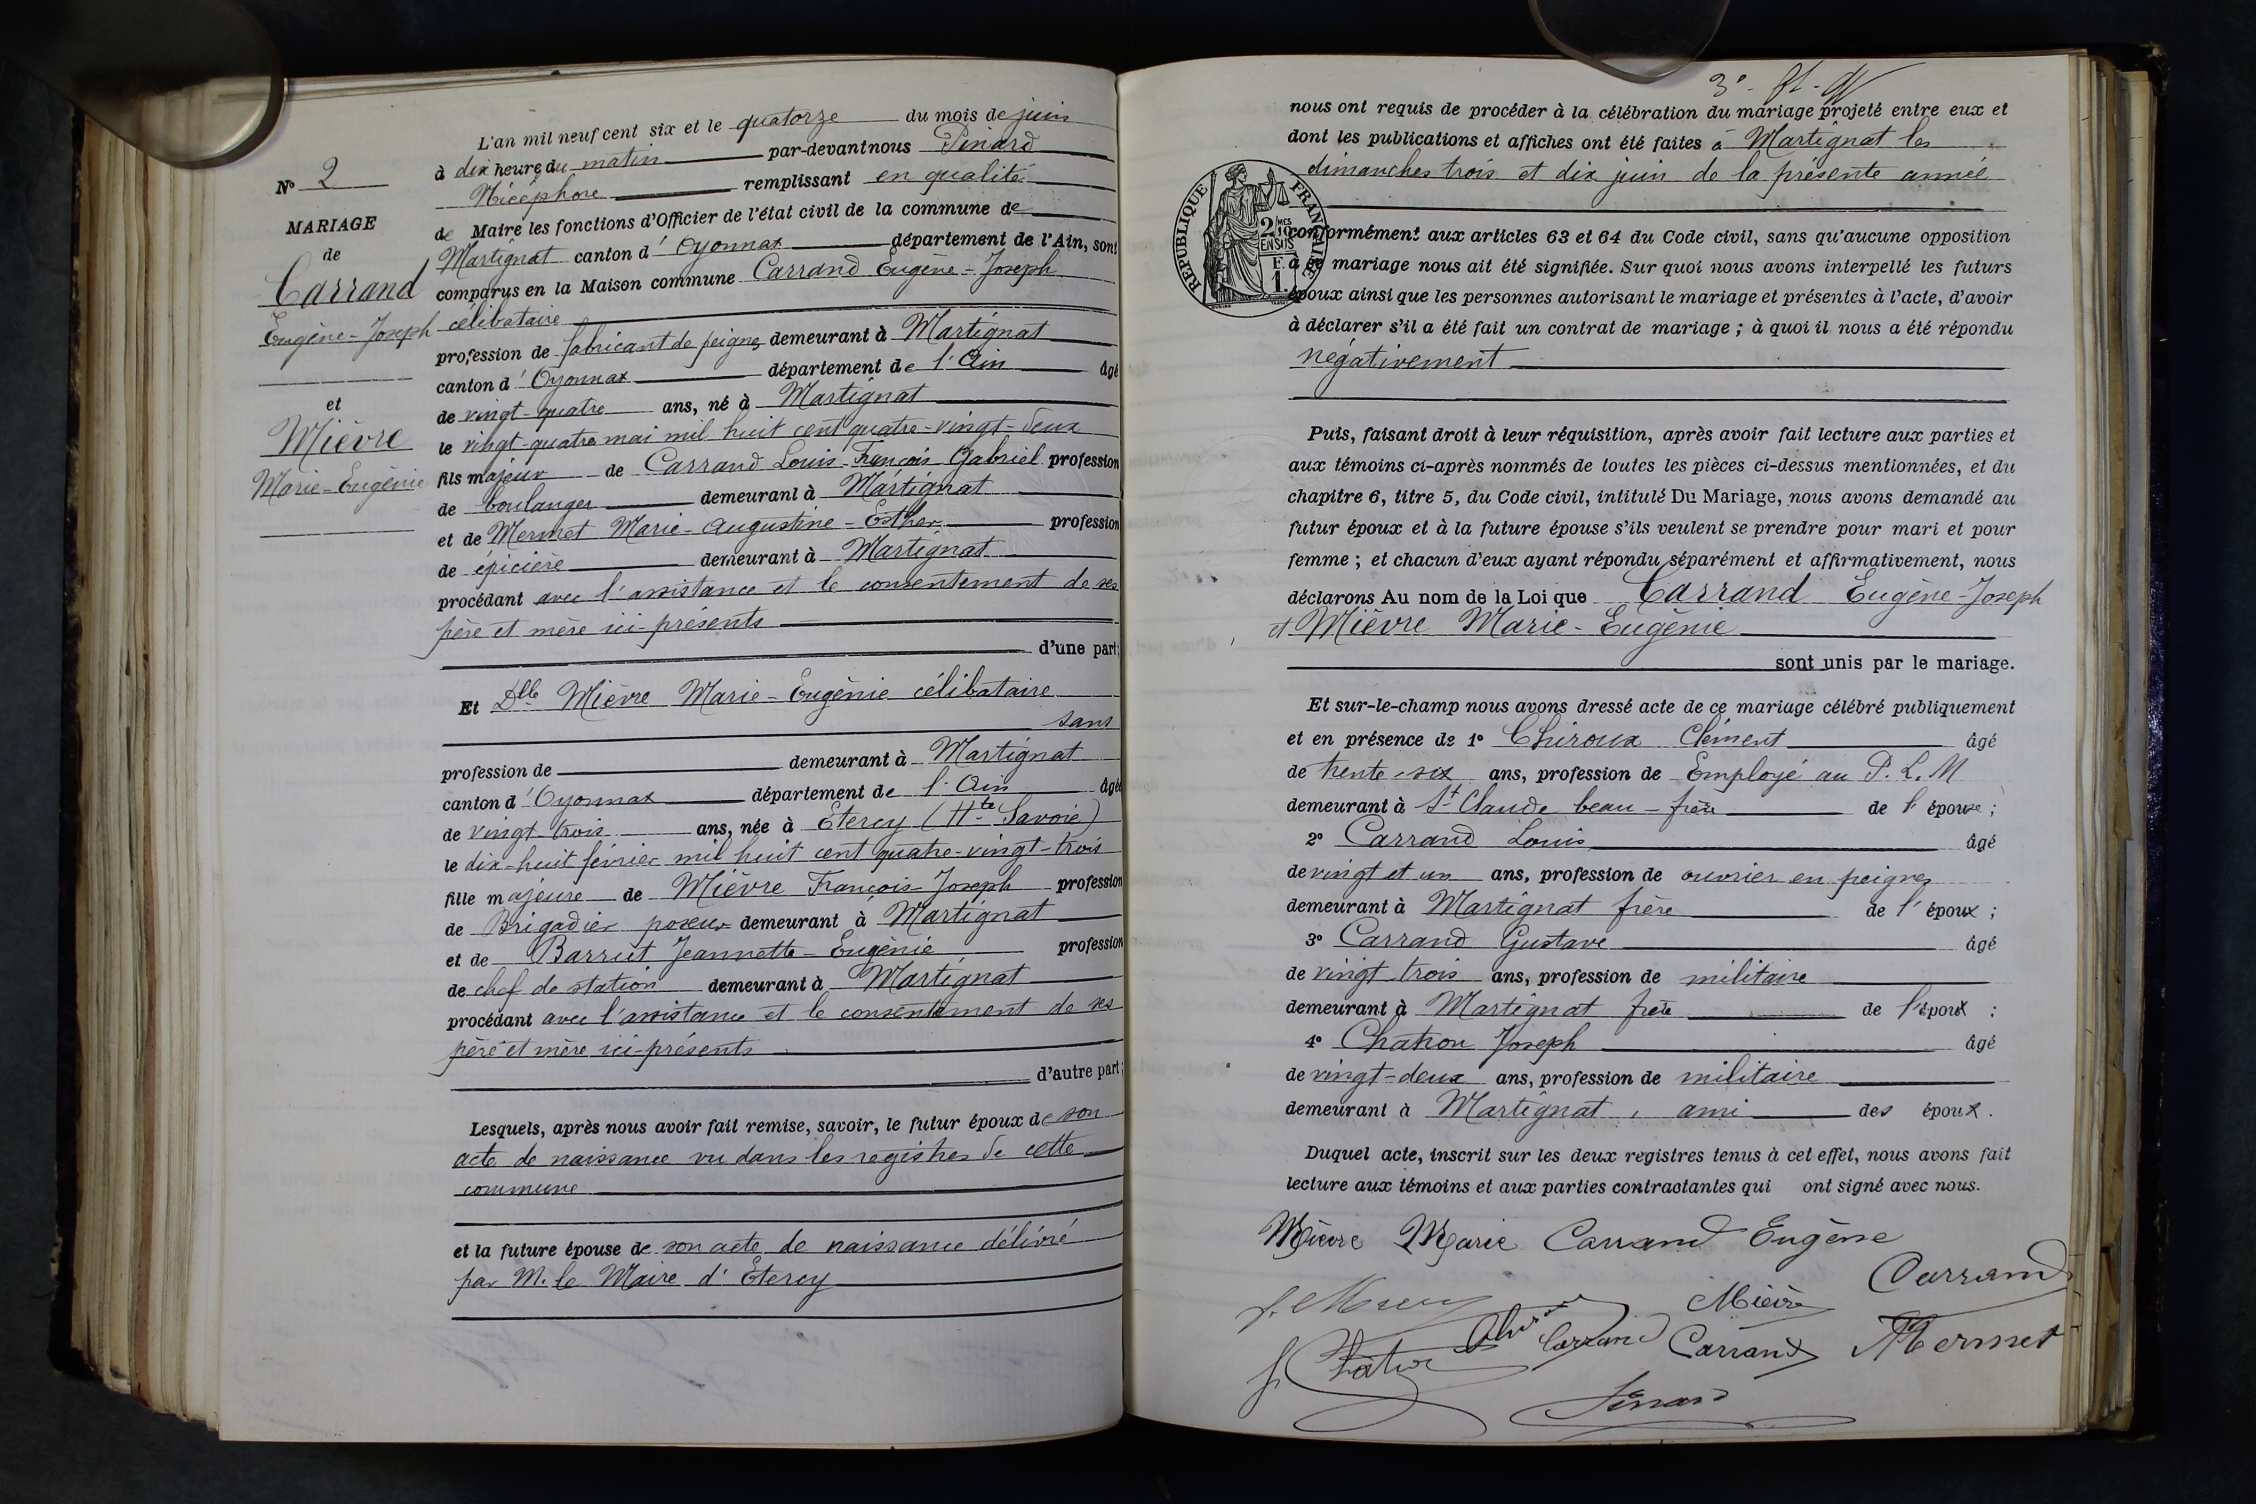 L'an mil neuf cent six et le quatorze du mois de juin
à dix heure du matin par-devant nous Pinard
Nicéphore remplissant en qualité
de Maire les fonctions d'Officier de l'état civil de la commune de
Martignat canton d' Oyonnax département de l'Ain, sont
comparus en la Maison commune Carrand Eugène-Joseph
célibataire
profession de fabricant de peignes demeurant à Martignat
canton d' Oyonnax département de l'Ain âgé
de vingt-quatre ans, né à Martignat
le vingt-quatre mai mil huit cent quatre-vingt-deux
fils majeur de Carrand Louis-François Gabriel profession
de boulanger demeurant à Martignat
et de Mermet Marie-Augustine-Esther profession
de épicière demeurant à Martignat
procédant avec l'assistance et le consentement de ses
père et mère ici-présents
d'une part;
Et Dlle Mièvre Marie-Eugénie célibataire
sans
profession de demeurant à Martignat
canton d' Oyonnax département de l'Ain âgée
de vingt-trois ans, née à Etercy (Hte Savoie)
le dix-huit février mil huit cent quatre-vingt-trois
fille majeure de Mièvre François-Joseph profession
de Brigadier poseur demeurant à Martignat
et de Barrut Jeannette-Eugénie profession
de chef de station demeurant à Martignat
procédant avec l'assistance et le consentement de ses
père et mère ici-présents
d'autre part;
Lesquels, après nous avoir fait remise, savoir, le futur époux de son
acte de naissance vu dans les registres de cette
commune
et la future épouse de son acte de naissance délivré
par M. le Maire d'Etercy
N° 2
MARIAGE
de
Carrand
Eugène-Joseph
et
Mièvre
Marie-Eugénie
3°
nous ont requis de procéder à la célébration du mariage projeté entre eux et
dont les publications et affiches ont été faites à Martignat les
dimanches trois et dix juin de la présente année
conformément aux articles 63 et 64 du Code civil, sans qu'aucune opposition
à ce mariage nous ait été signifiée. Sur quoi nous avons interpellé les futurs
époux ainsi que les personnes autorisant le mariage et présentes à l'acte, d'avoir
à déclarer s'il a été fait un contrat de mariage ; à quoi il nous a été répondu
négativement
REPUBLIQUE FRANÇAISE
2/10 MES
EN SUS
F.
1.
Puis, faisant droit à leur réquisition, après avoir fait lecture aux parties et
aux témoins ci-après nommés de toutes les pièces ci-dessus mentionnées, et du
chapitre 6, titre 5, du Code civil, intitulé Du Mariage, nous avons demandé au
futur époux et à la future épouse s'ils veulent se prendre pour mari et pour
femme ; et chacun d'eux ayant répondu séparément et affirmativement, nous
déclarons Au nom de la Loi que Carrand Eugène-Joseph
et Mièvre Marie-Eugénie
sont unis par le mariage.
Et sur-le-champ nous avons dressé acte de ce mariage célébré publiquement
et en présence de 1° Chiroux Clément âgé
de trente-six ans, profession de Employé au P.L.M
demeurant à St Claude beau-frère de l'épouse ;
2° Carrand Louis âgé
de vingt et un ans, profession de ouvrier en peignes
demeurant à Martignat frère de l'époux ;
3° Carrand Gustave âgé
de vingt trois ans, profession de militaire
demeurant à Martignat frère de l'époux ;
4° Chatron Joseph âgé
de vingt-deux ans, profession de militaire
demeurant à Martignat, ami des époux.
Duquel acte, inscrit sur les deux registres tenus à cet effet, nous avons fait
lecture aux témoins et aux parties contractantes qui ont signé avec nous.
Mièvre Marie Carrand Eugène
Mièvre Carrand
Carrand Carrand Mermet
Pinard